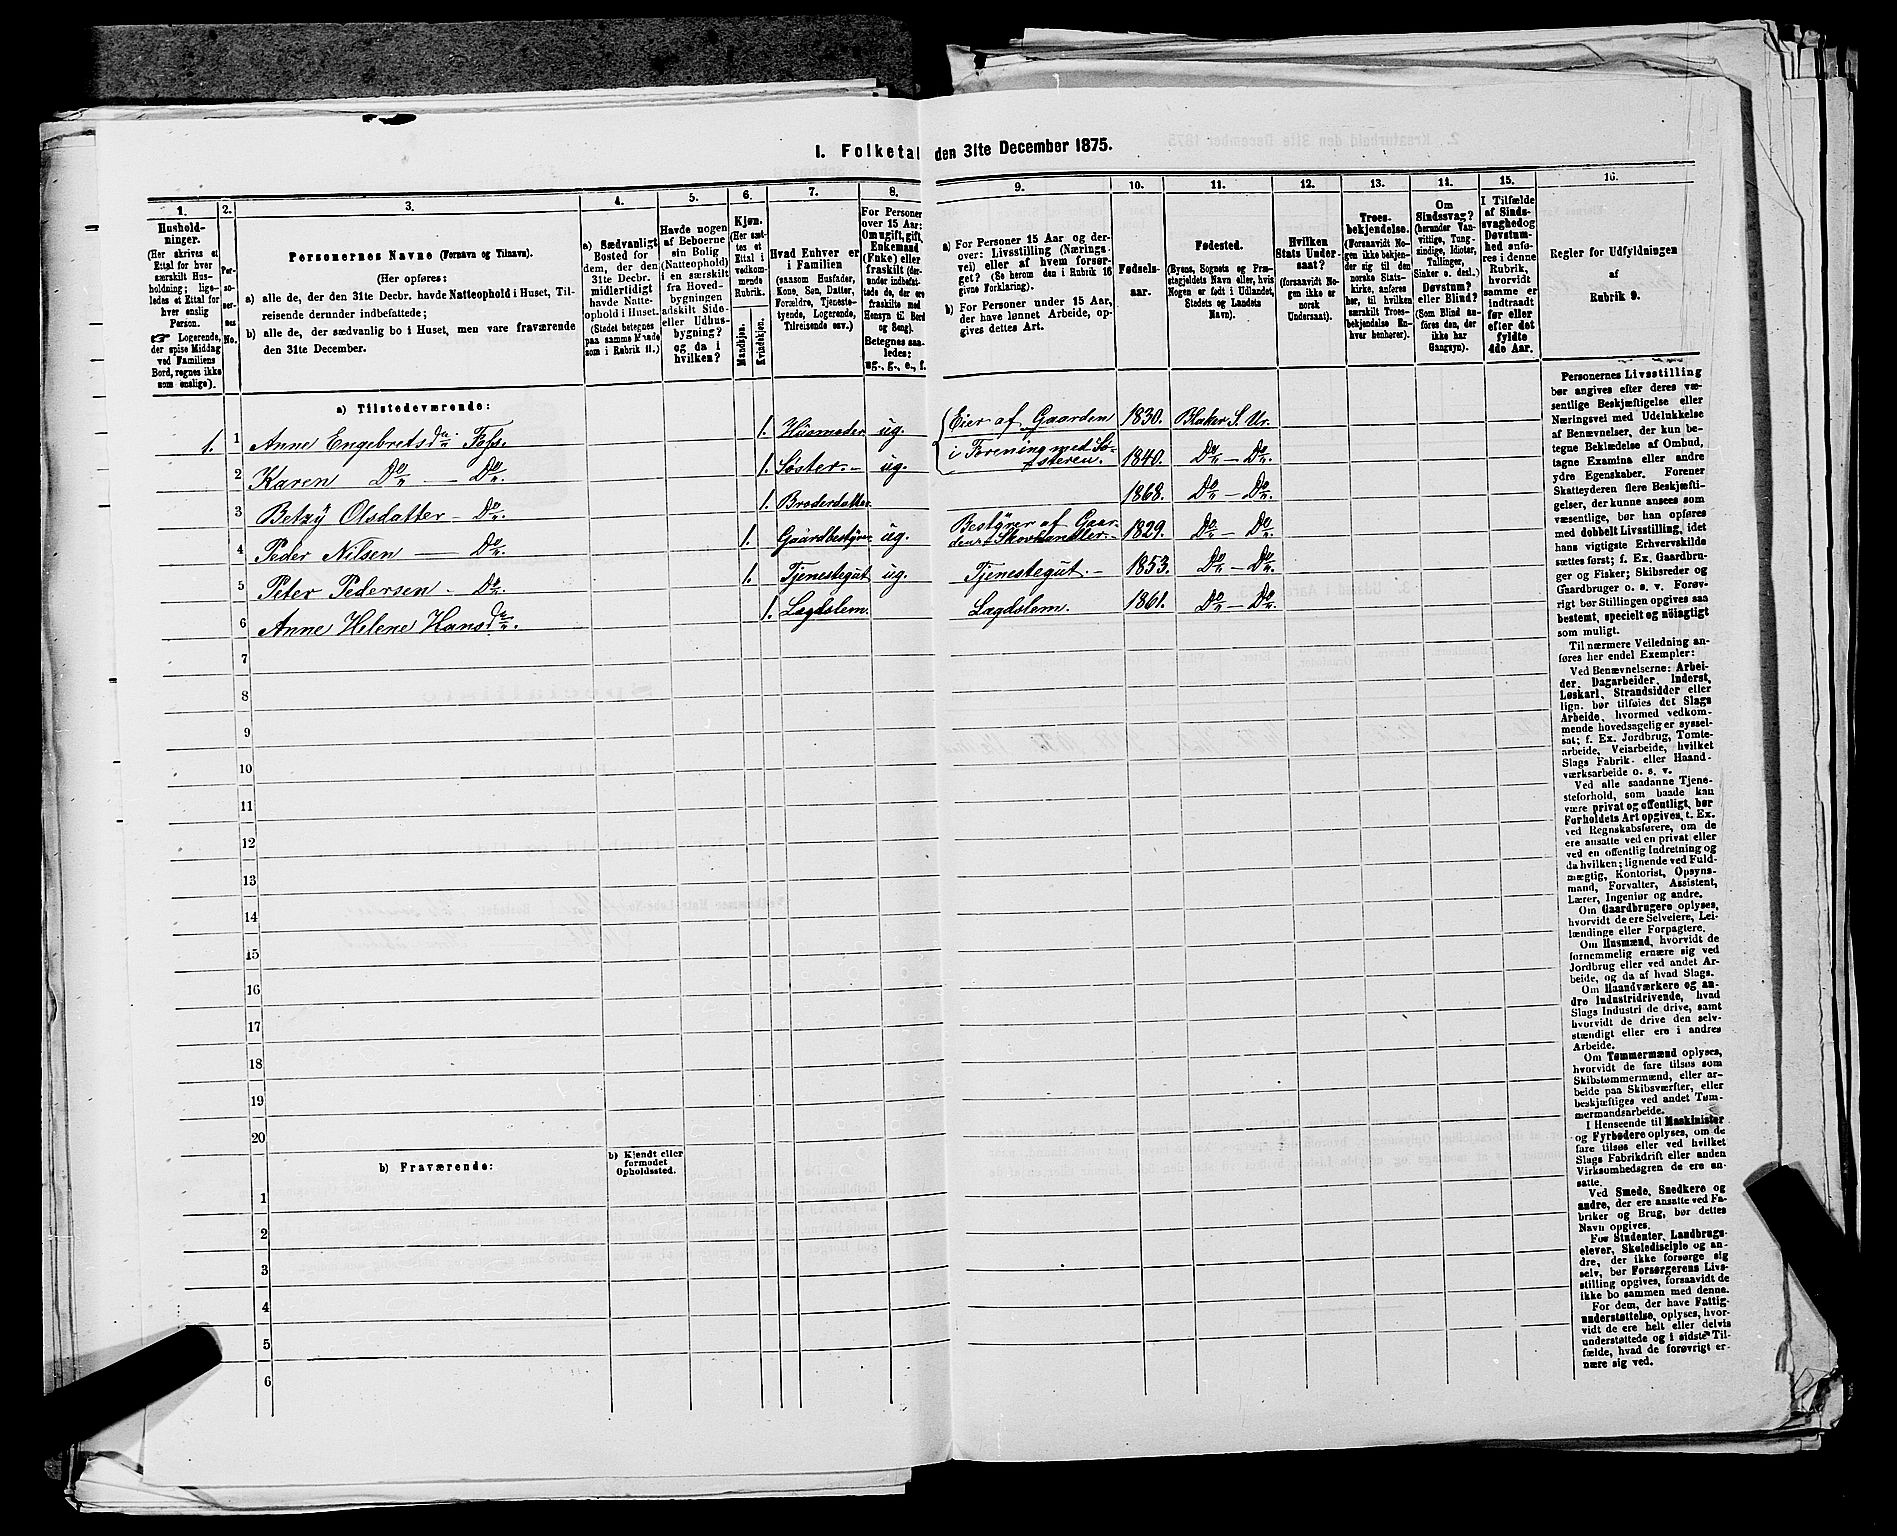 I. Folketal den 31te December 1875.
1. 2. 3. 4. 5. 6. 7. 8. 9. 10. 11. 12. 13. 14. 15. 16.
Husholdninger.
(Her skrives et
Ettal for hver
særskilt Husholdning;
ligeledes et Ettal for
hver enslig
Person.
☞ Logerende,
der spise Middag
ved Familiens
Bord, regnes ikke
som enslige).
Personernes No.
Personernes Navne (Fornavn og Tilnavn).
(Her opføres:
a) alle de, der den 31te Decbr. havde Natteophold i Huset, Tilreisende derunder indbefattede;
b) alle de, der sædvanlig bo i Huset, men vare fraværende
den 31te December.
a) Sædvanligt
Bosted for
dem, der den
31te Decbr.
midlertidigt
havde Natteophold i Huset.
(Stedet betegnes
paa samme Maade
som i Rubrik 11.)
Havde nogen
af Beboerne
sin Bolig
(Natteophold)
i en særskilt
fra Hovedbygningen
adskilt Side-
eller Udhusbygning?
og da i
hvilken?
Kjøn.
(Her sættes et
Ettal i
vedkommende
Rubrik.
Mandkjøn.
Kvindekjøn.
Hvad Enhver er
i Familien
(saasom Husfader,
Kone, Søn, Datter,
Forældre, Tjenestetyende, Logerende,
Tilreisende osv.)
For Personer
over 15 Aar:
Om ugift, gift,
Enkemand
(Enke) eller
fraskilt (derunder indbefattede de, der ere
fraskilte med
Hensyn til Bord
og Seng).
Betegnes saaledes:
ug., g., e., f.
a) For Personer 15 Aar og derover: Livsstilling (Næringsvei) eller af hvem forsørget? (Se herom den i Rubrik 16
givne Forklaring).
b) For Personer under 15 Aar,
der have lønnet Arbeide, opgives dettes Art.
Fødselsaar.
Fødested.
(Byens, Sognets og Præstegjeldets Navn eller, hvis
Nogen er født i Udlandet,
Stedets og Landets
Navn).
Hvilken
Stats Undersaat?
(forsaavidt Nogen ikke er
norsk
Undersaat).
Troesbekjendelse.
(Forsaavidt Nogen ikke bekjender sig til den
norske Statskirke, anføres
her, til hvilken
særskilt Troesbekjendelse Enhver henhører).
Om
Sindssvag?
(herunder Vanvittige, Tungsindige, Idioter,
Tullinger,
Sinker o. desl.)
Døvstum?
eller Blind?
(Som Blind anføres den, der
ikke har
Gangsyn).
I Tilfælde
af Sindssvaghed og
Døvstumhed anføres i denne
Rubrik,
hvorvidt
samme er
indtraadt
før eller
efter det
fyldte
4de Aar.
Regler for Udfyldningen
af
Rubrik 9.
a) Tilstedeværende:
1. 1 Anne Engebretsdr. Foss. 1. Husmoder ug. Eier af Gaarden i Forening med Søsteren. 1830. Blaker S. Ur.
2 Karen Do — Do. 1. Søster. ug. 1840. Do — Do.
3 Betzy Olsdatter — Do. 1. Broderdatter. 1868. Do — Do.
4 Peder Nilsen — Do. 1. Gaardbestyrer ug. Bestyrer af Gaarden + Skovhandler. 1829. Do — Do.
5 Peter Pedersen — Do. 1. Tjenestegut ug. Tjenestegut. — 1853. Do — Do.
6 Anne Helene Hansdr. 1. Lægdslem. Lægdslem. 1861. Do — Do.
7
8
9
10
11
12
13
14
15
16
17
18
19
20
b) Fraværende:
b) Kjendt eller
formodet
Opholdssted.
1
2
3
4
5
6
Personernes Livsstilling
bør angives efter deres væsentlige Beskjæftigelse eller
Næringsvei med Udelukkelse
af Benævnelser, der kun betegne Beklædelse af Ombud,
tagne Examina eller andre
ydre Egenskaber. Forener
Skatteyderen flere Beskjæftigelser, der kunne ansees som
væsentlige, bør han opføres
med dobbelt Livsstilling, idet
hans vigtigste Erhvervskilde
sættes først; f. Ex. Gaardbruger og Fisker; Skibsreder og
Gaardbruger o. s. v. Forøvrigt bør Stillingen opgives saa
bestemt, specielt og nöiagtigt
som muligt.
Til nærmere Veiledning anføres her endel Exempler:
Ved Benævnelserne: Arbeider, Dagarbeider, Inderst,
Løskarl, Strandsidder eller
lign. bør tilføies det Slags
Arbeide, hvormed vedkommende hovedsagelig er sysselsat; f. Ex. Jordbrug, Tomtearbeide, Veiarbeide, hvilket
Slags Fabrik- eller Haandværksarbeide o. s. v.
Ved alle saadanne Tjenesteforhold, som baade kan
være privat og offentligt, bør
Forholdets Art opgives, t. Ex.
ved Regnskabsførere, om de
ere ansatte ved en privat eller
ved en offentlig Indretning og
da hvilken; lignende ved Fuldmægtig, Kontorist, Opsynsmand, Forvalter, Assistent,
Lærer, Ingeniør og andre.
Om Gaardbrugere oplyses,
hvorvidt de ere Selveiere, Leilændinge eller Forpagtere.
Om Husmænd, hvorvidt de
fornemmelig ernære sig ved
Jordbrug eller ved andet Arbeide, og da af hvad Slags.
Om Haandværkere og andre Industridrivende, hvad
Slags Industri de drive, samt
hvorvidt de drive den selvstændigt eller ere i andres
Arbeide.
Om Tømmermænd oplyses,
hvorvidt de fare tilsøs som
Skibstømmermænd, eller arbeide paa Skibsværfter, eller
beskjæftiges ved andet Tømmermandsarbeide.
I Henseende til Maskinister
og Fyrbødere oplyses, om de
fare tilsøs eller ved hvilket
Slags Fabrikdrift eller anden
Virksomhedsgren de ere ansatte.
Ved Smede, Snedkere og
andre, der ere ansatte ved Fabriker og Brug, bør dettes
Navn opgives.
For Studenter, Landbrugselever, Skoledisciple og andre, der ikke forsørge sig
selv, bør Forsørgerens Livsstilling opgives, forsaavidt de
ikke bo sammen med denne.
For dem, der have Fattigunderstøttelse, oplyses, hvorvidt de ere helt eller delvis
understøttede og i sidste Tilfælde, hvad de forøvrigt ernære sig ved.